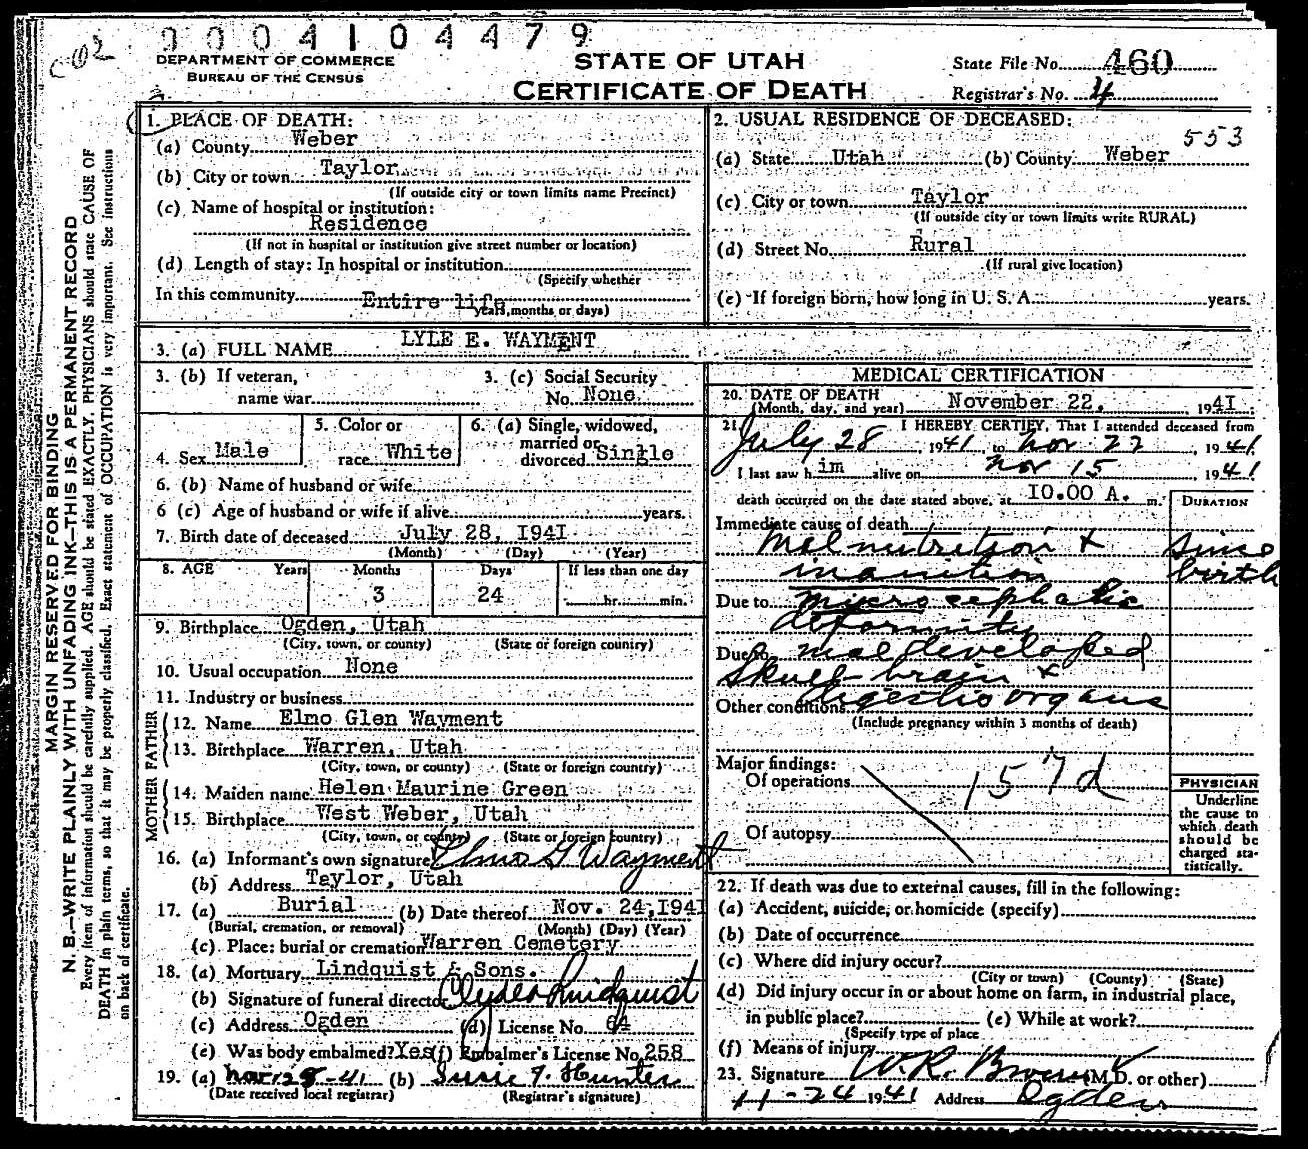 0004104479
C02
DEPARTMENT OF COMMERCE
BUREAU OF THE CENSUS
STATE OF UTAH
CERTIFICATE OF DEATH
State File No. 460
Registrar's No. 4
MARGIN RESERVED FOR BINDING
N. B.—WRITE PLAINLY WITH UNFADING INK—THIS IS A PERMANENT RECORD
Every item of information should be carefully supplied. AGE should be stated EXACTLY. PHYSICIANS should state CAUSE OF
DEATH in plain terms, so that it may be properly classified. Exact statement of OCCUPATION is very important. See instructions
on back of certificate.
1. PLACE OF DEATH:
(a) County Weber
(b) City or town Taylor
(If outside city or town limits name Precinct)
(c) Name of hospital or institution:
Residence
(If not in hospital or institution give street number or location)
(d) Length of stay: In hospital or institution
(Specify whether
In this community Entire life
years, months or days)
2. USUAL RESIDENCE OF DECEASED:
553
(a) State Utah (b) County Weber
(c) City or town Taylor
(If outside city or town limits write RURAL)
(d) Street No. Rural
(If rural give location)
(e) If foreign born, how long in U. S. A. years.
3. (a) FULL NAME LYLE E. WAYMENT
3. (b) If veteran,
name war
3. (c) Social Security
No. None
4. Sex Male
5. Color or
race White
6. (a) Single, widowed,
married or
divorced Single
6. (b) Name of husband or wife
6 (c) Age of husband or wife if alive years.
7. Birth date of deceased July 28, 1941
(Month) (Day) (Year)
8. AGE Years Months Days If less than one day
3 24 hr. min.
9. Birthplace Ogden, Utah
(City, town, or county) (State or foreign country)
10. Usual occupation None
11. Industry or business
FATHER
12. Name Elmo Glen Wayment
13. Birthplace Warren, Utah
(City, town, or county) (State or foreign country)
MOTHER
14. Maiden name Helen Maurine Green
15. Birthplace West Weber, Utah
(City, town, or county) (State or foreign country)
16. (a) Informant's own signature Elmo G Wayment
(b) Address Taylor, Utah
17. (a) Burial (b) Date thereof Nov. 24, 1941
(Burial, cremation, or removal) (Month) (Day) (Year)
(c) Place: burial or cremation Warren Cemetery
18. (a) Mortuary Lindquist & Sons.
(b) Signature of funeral director Clyde Lindquist
(c) Address Ogden (d) License No. 64
(e) Was body embalmed? Yes (f) Embalmer's License No. 258
19. (a) Nov 28-41 (b) Susie T. Hunter
(Date received local registrar) (Registrar's signature)
MEDICAL CERTIFICATION
20. DATE OF DEATH
(Month, day, and year) November 22, 1941
21. I HEREBY CERTIFY, That I attended deceased from
July 28 1941 to Nov. 22, 1941
I last saw him alive on Nov 15 1941
death occurred on the date stated above, at 10.00 A. m.
DURATION
Immediate cause of death
Malnutrition & since
inanition birth
Due to microcephalic
deformity
Due to maldeveloped
Skull brain &
Other conditions digestive organs
(Include pregnancy within 3 months of death)
Major findings:
Of operations
157d
Of autopsy
PHYSICIAN
Underline
the cause to
which death
should be
charged sta-
tistically.
22. If death was due to external causes, fill in the following:
(a) Accident, suicide, or homicide (specify)
(b) Date of occurrence
(c) Where did injury occur?
(City or town) (County) (State)
(d) Did injury occur in or about home on farm, in industrial place,
in public place? (e) While at work?
(Specify type of place
(f) Means of injury
23. Signature W. R. Brown (M.D. or other)
11-24 1941 Address Ogden